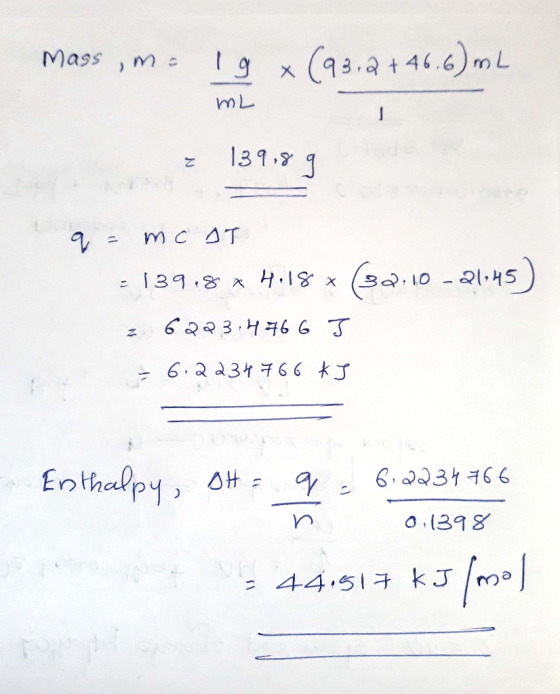 Mass, m = 1 g / mL × (93.2 + 46.6) mL / 1
= 139.8 g
q = m c ΔT
= 139.8 × 4.18 × (32.10 - 21.45)
= 6223.4766 J
= 6.2234766 kJ
Enthalpy, ΔH = q / n = 6.2234766 / 0.1398
= 44.517 kJ/mol